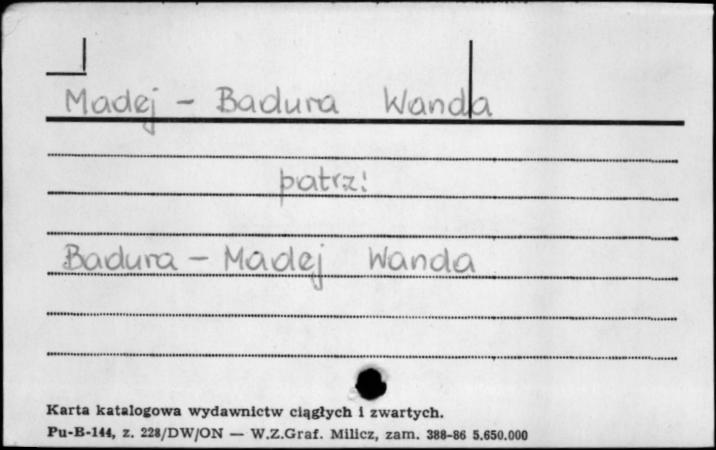 Madej - Badura Wanda
patrz:
Badura - Madej Wanda
Karta katalogowa wydawnictw ciągłych i zwartych.
Pu-B-144, z. 228/DW/ON — W.Z.Graf. Milicz, zam. 388-86 5.650.000